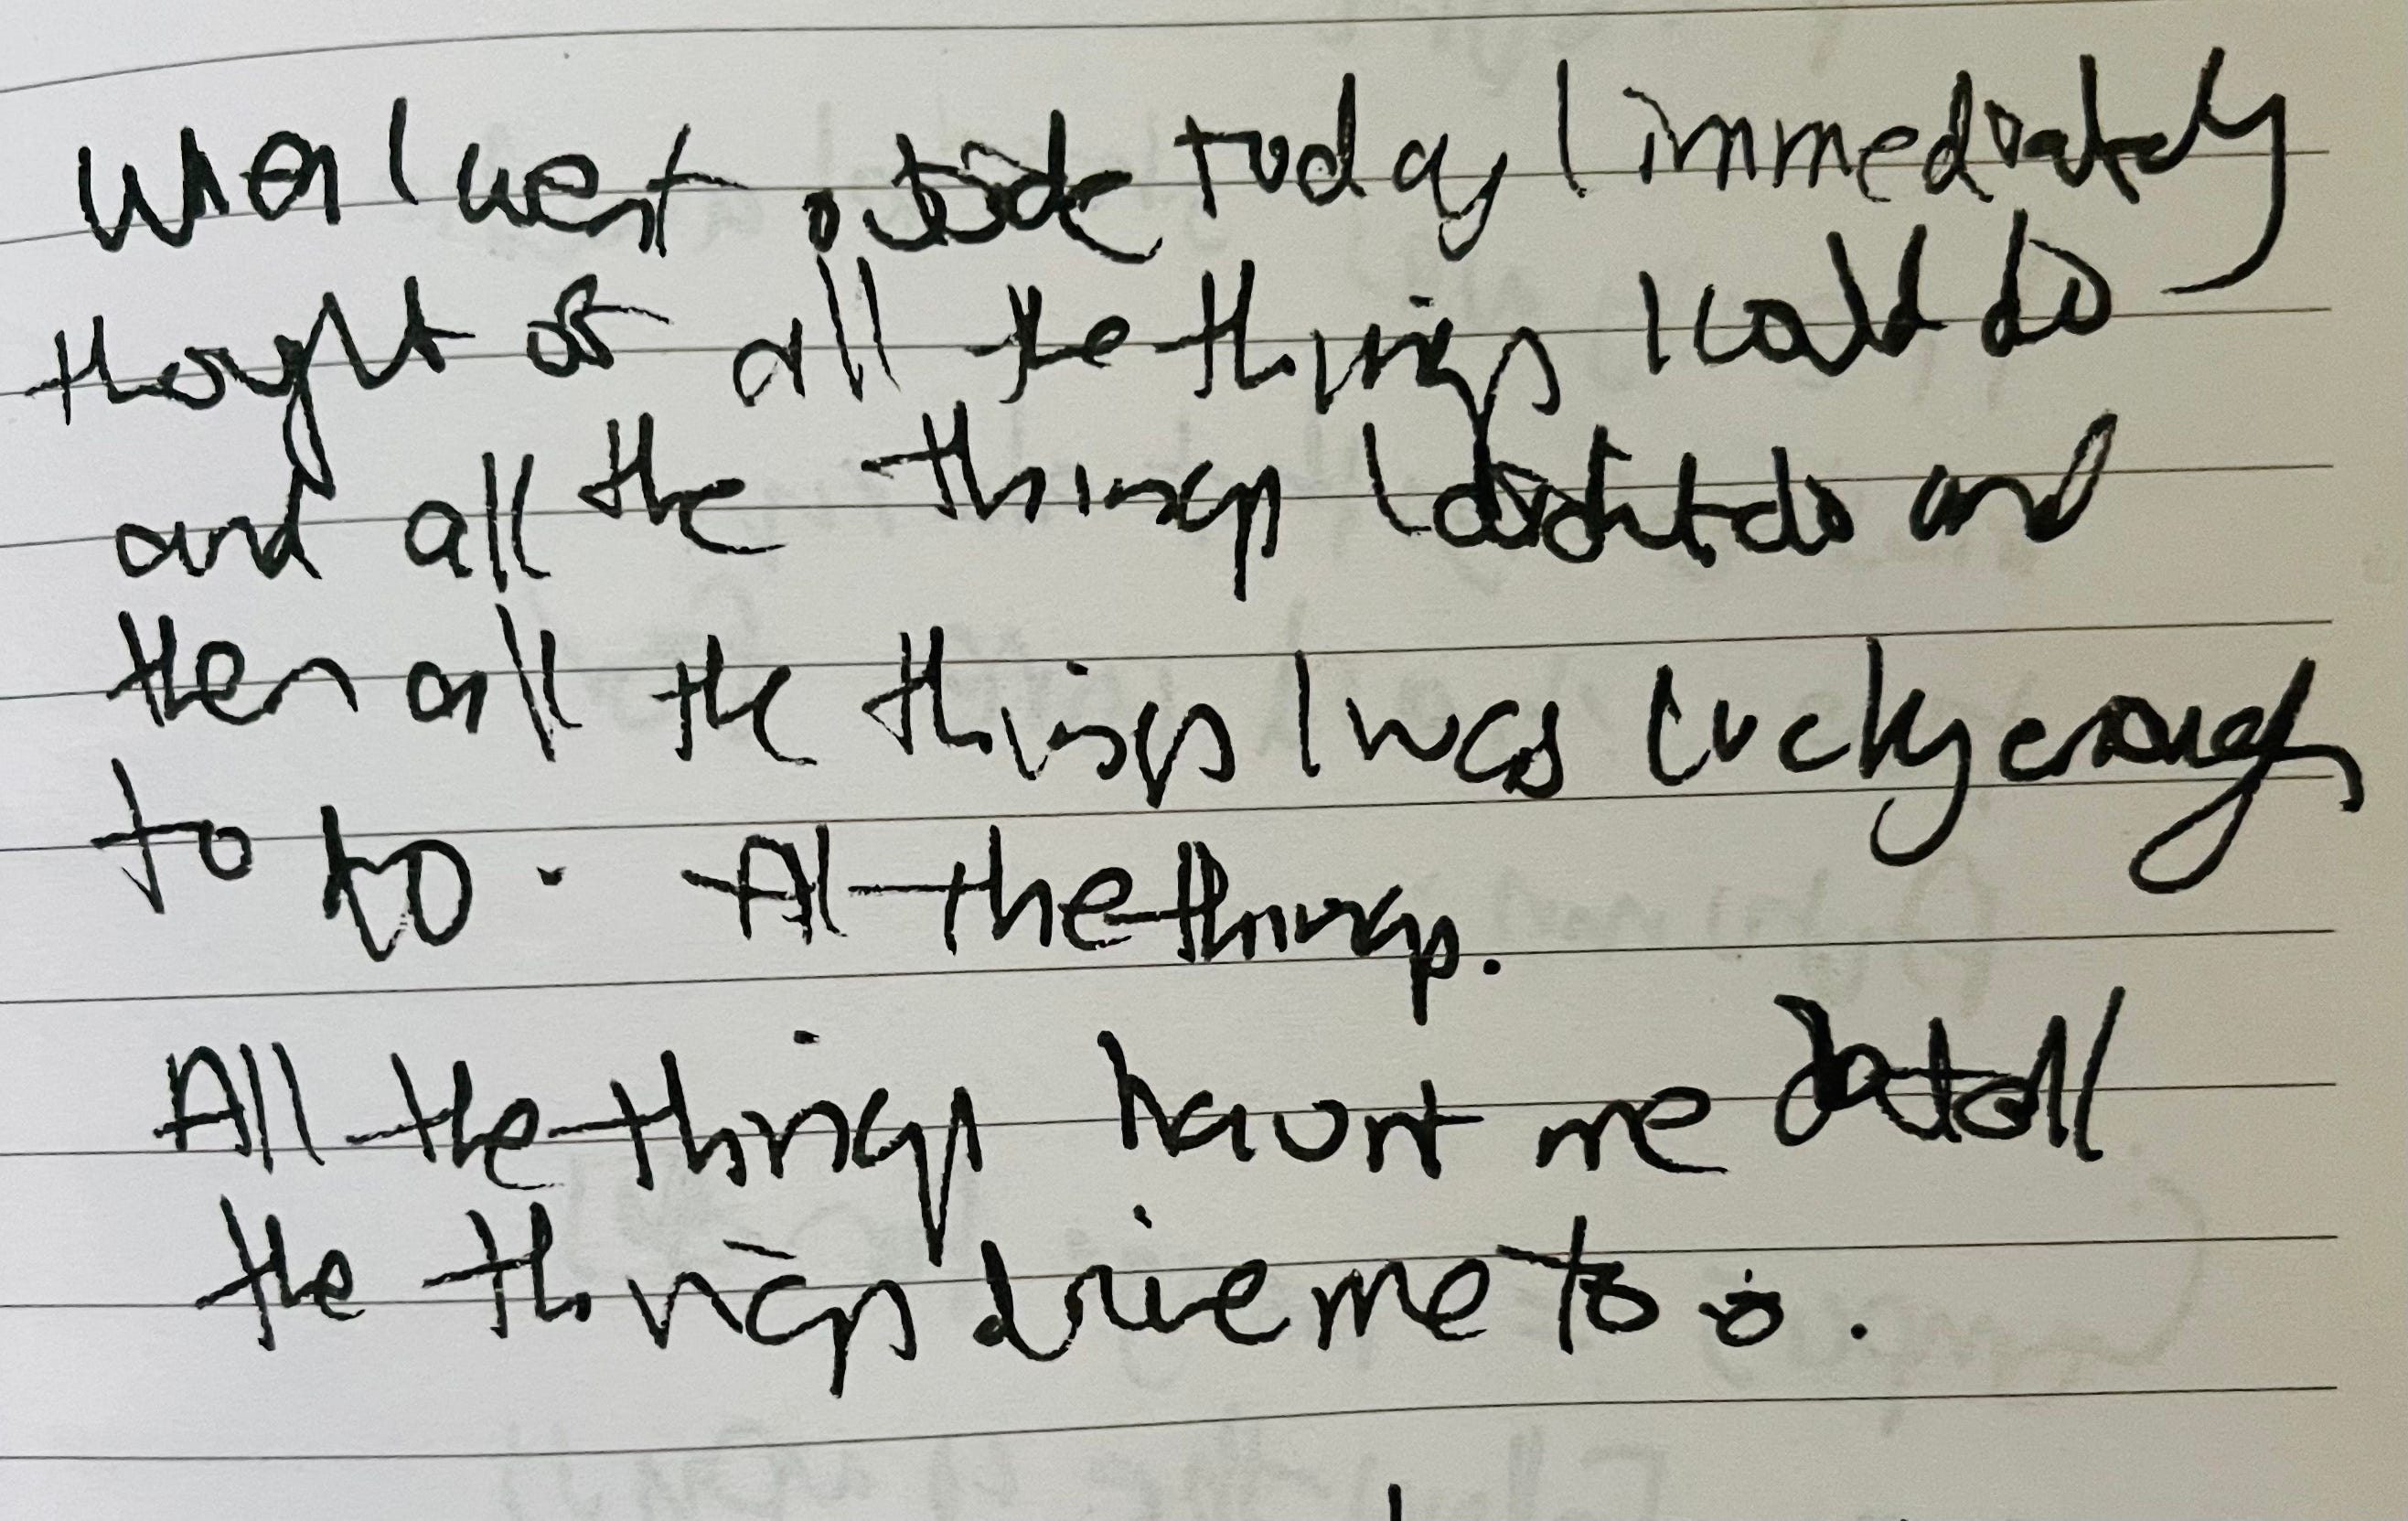 When I went outside today I immediately
thought of all the things I could do
and all the things I didn't do and
then all the things I was lucky enough
to to. All the things.
All the things haunt me but all
the things drive me to.